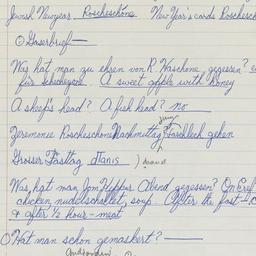 Jewish Newyears. Roscheschone New Year's cards Roschesch
Gaserbrief—
Was hat man zu ehren von R. Haschone gegessen?
für schecheyone. A sweet apple with honey
A sheep's head? A fish head? no
Zeremonie Roscheschone Nachmittag? Taschlech gehen
Grosser Fasttag
Was hat man Jom Kippur Abend gegessen? On Eref
chicken, nudelschallet, soup. After the fast -
& after ½ hour - meat
Hat man schon gemaskert? —